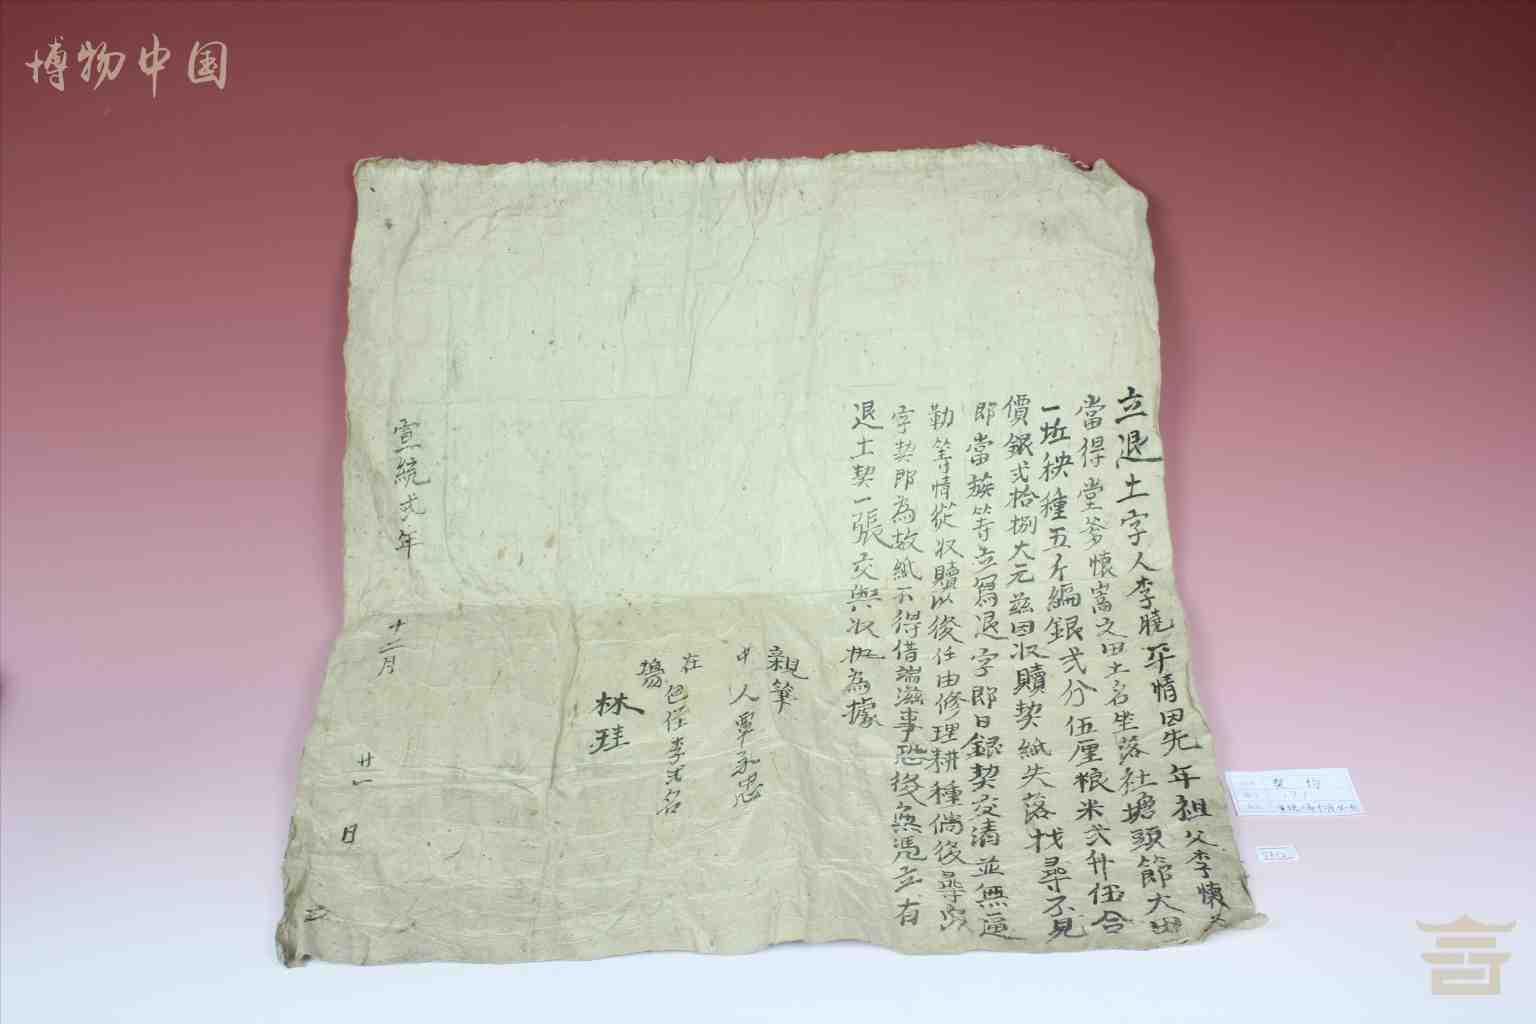 博物中国
立退土字人李曉平情因先年祖父李懷
當得堂爹懷嵩之田土名坐落社塘頭節大田
一坵秧種五斤編銀弍分伍厘粮米弍升伍合
價銀弍拾捌大元茲因收贖契紙失落找尋不見
即當族等立寫退字即日銀契交清並無逼
勒等情從收贖以後任由修理耕種倘後尋出
字契即為故紙不得借端滋事恐後無憑立有
退土契一張交與收執為據
親筆
中人覃承忠
在
場
林珪
宣統弍年
十二月
廿一
日